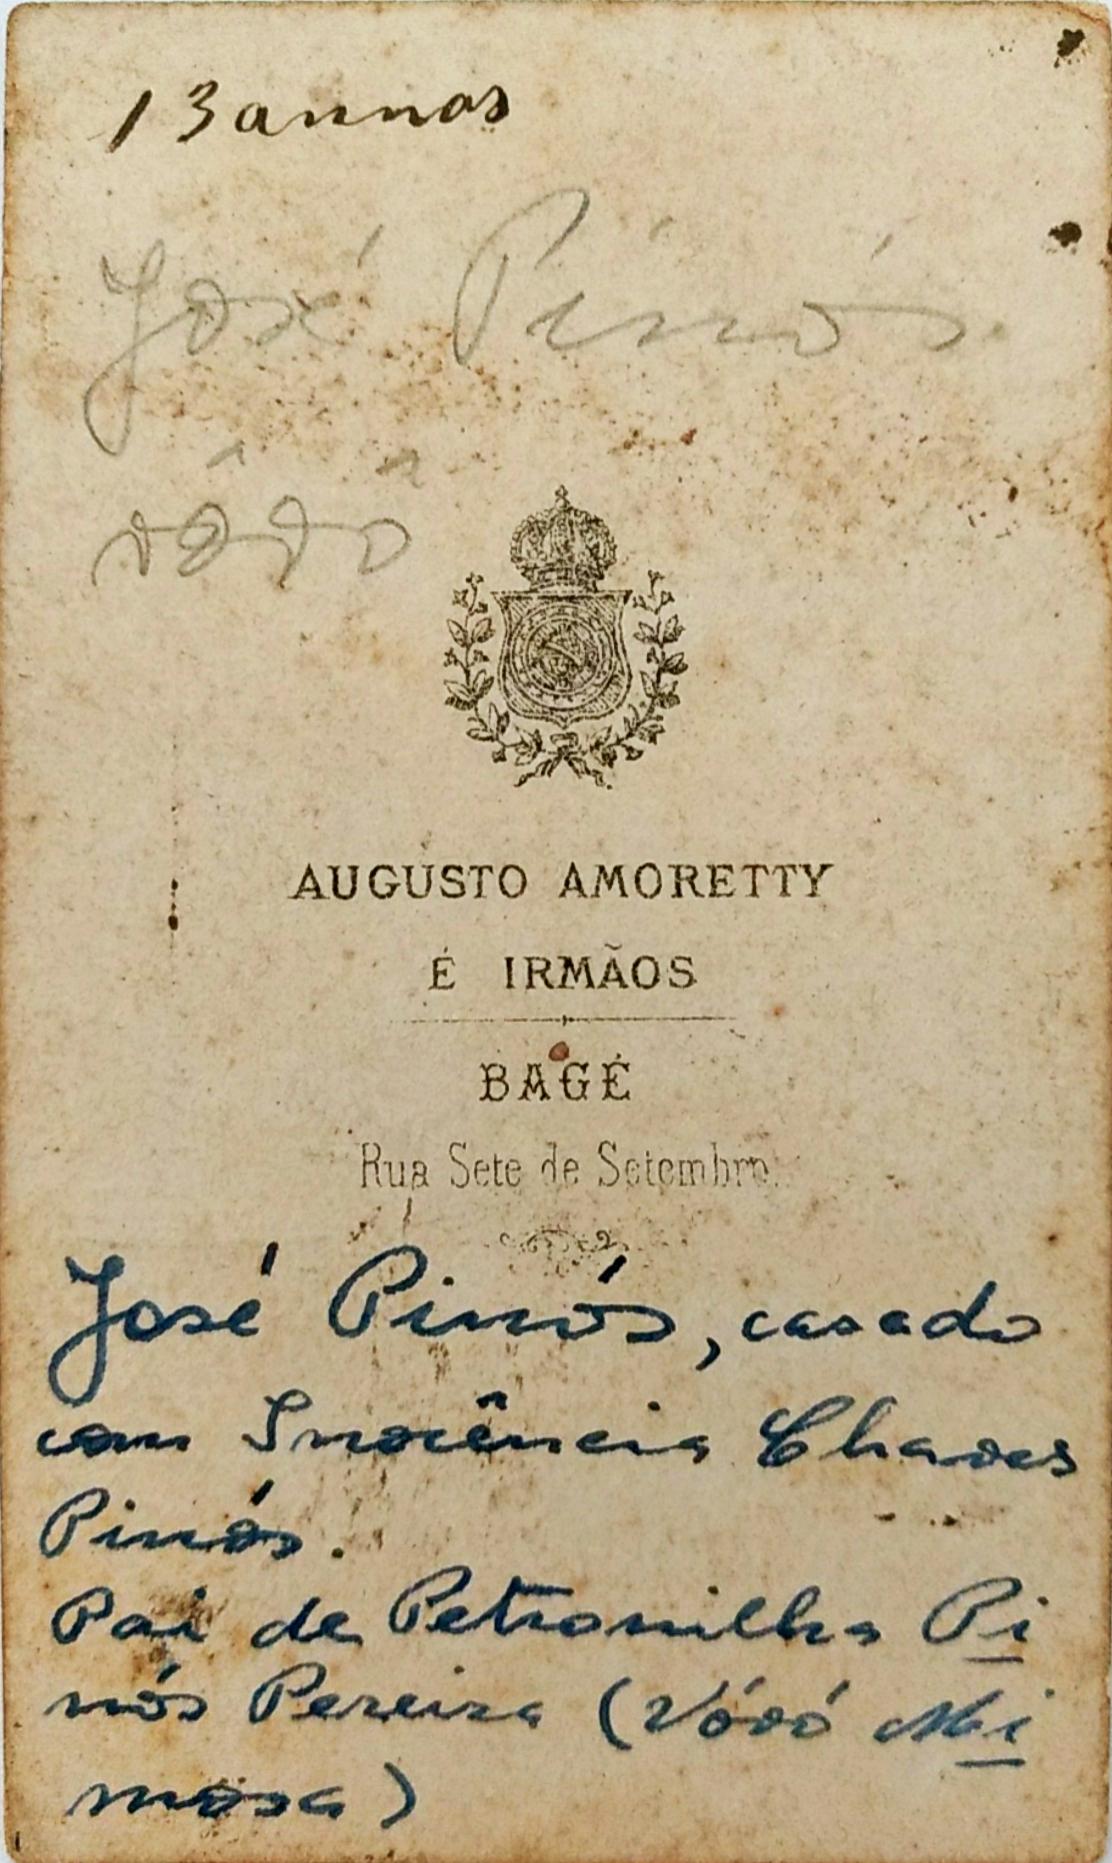 13 annos
José Pinós
vôvô
AUGUSTO AMORETTY
É IRMÃOS
BAGÉ
Rua Sete de Setembro.
José Pinós, casado
com Inocência Chaves
Pinós.
Pai de Petronilha Pi
nós Pereira (Vóvó Mi
mosa)